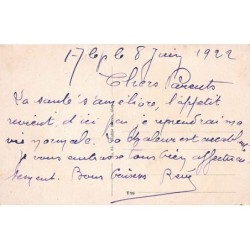 le 8 Juin 1922
Chers Parents
La santé s'améliore, l'appétit
revient, d'ici je reprendrai ma
vie normale. La chaleur est
je vous embrasse tous bien affectueu
sement. Bons baisers René